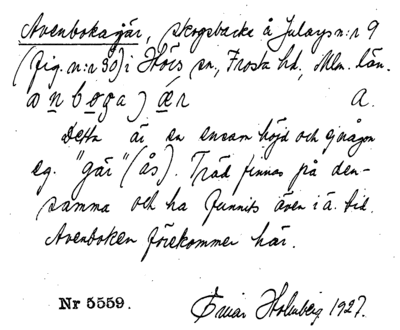 Avenbokagjär, skogsbacke å Julays n:r 9
(fig. n:r 30) i Hörs sn, Frosta hd, Mlm. län.
a n b o g a j ä r a.
Detta är en ensam höjd och
eg. "gär" (ås). Träd finnas på den-
samma och ha funnits även i ä. tid.
Avenboken förekommer här.
Nr 5559. Einar Holmberg 1927.